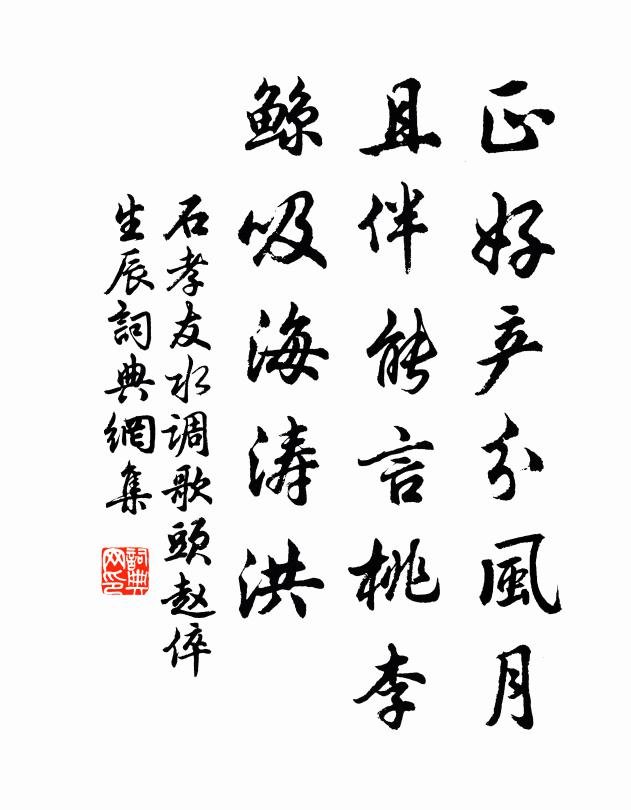 正好平分風月
且伴能言桃李
鯨吸海涛洪
石孝友水调歌頭赵倅
生辰詞典網集
詞典
网印